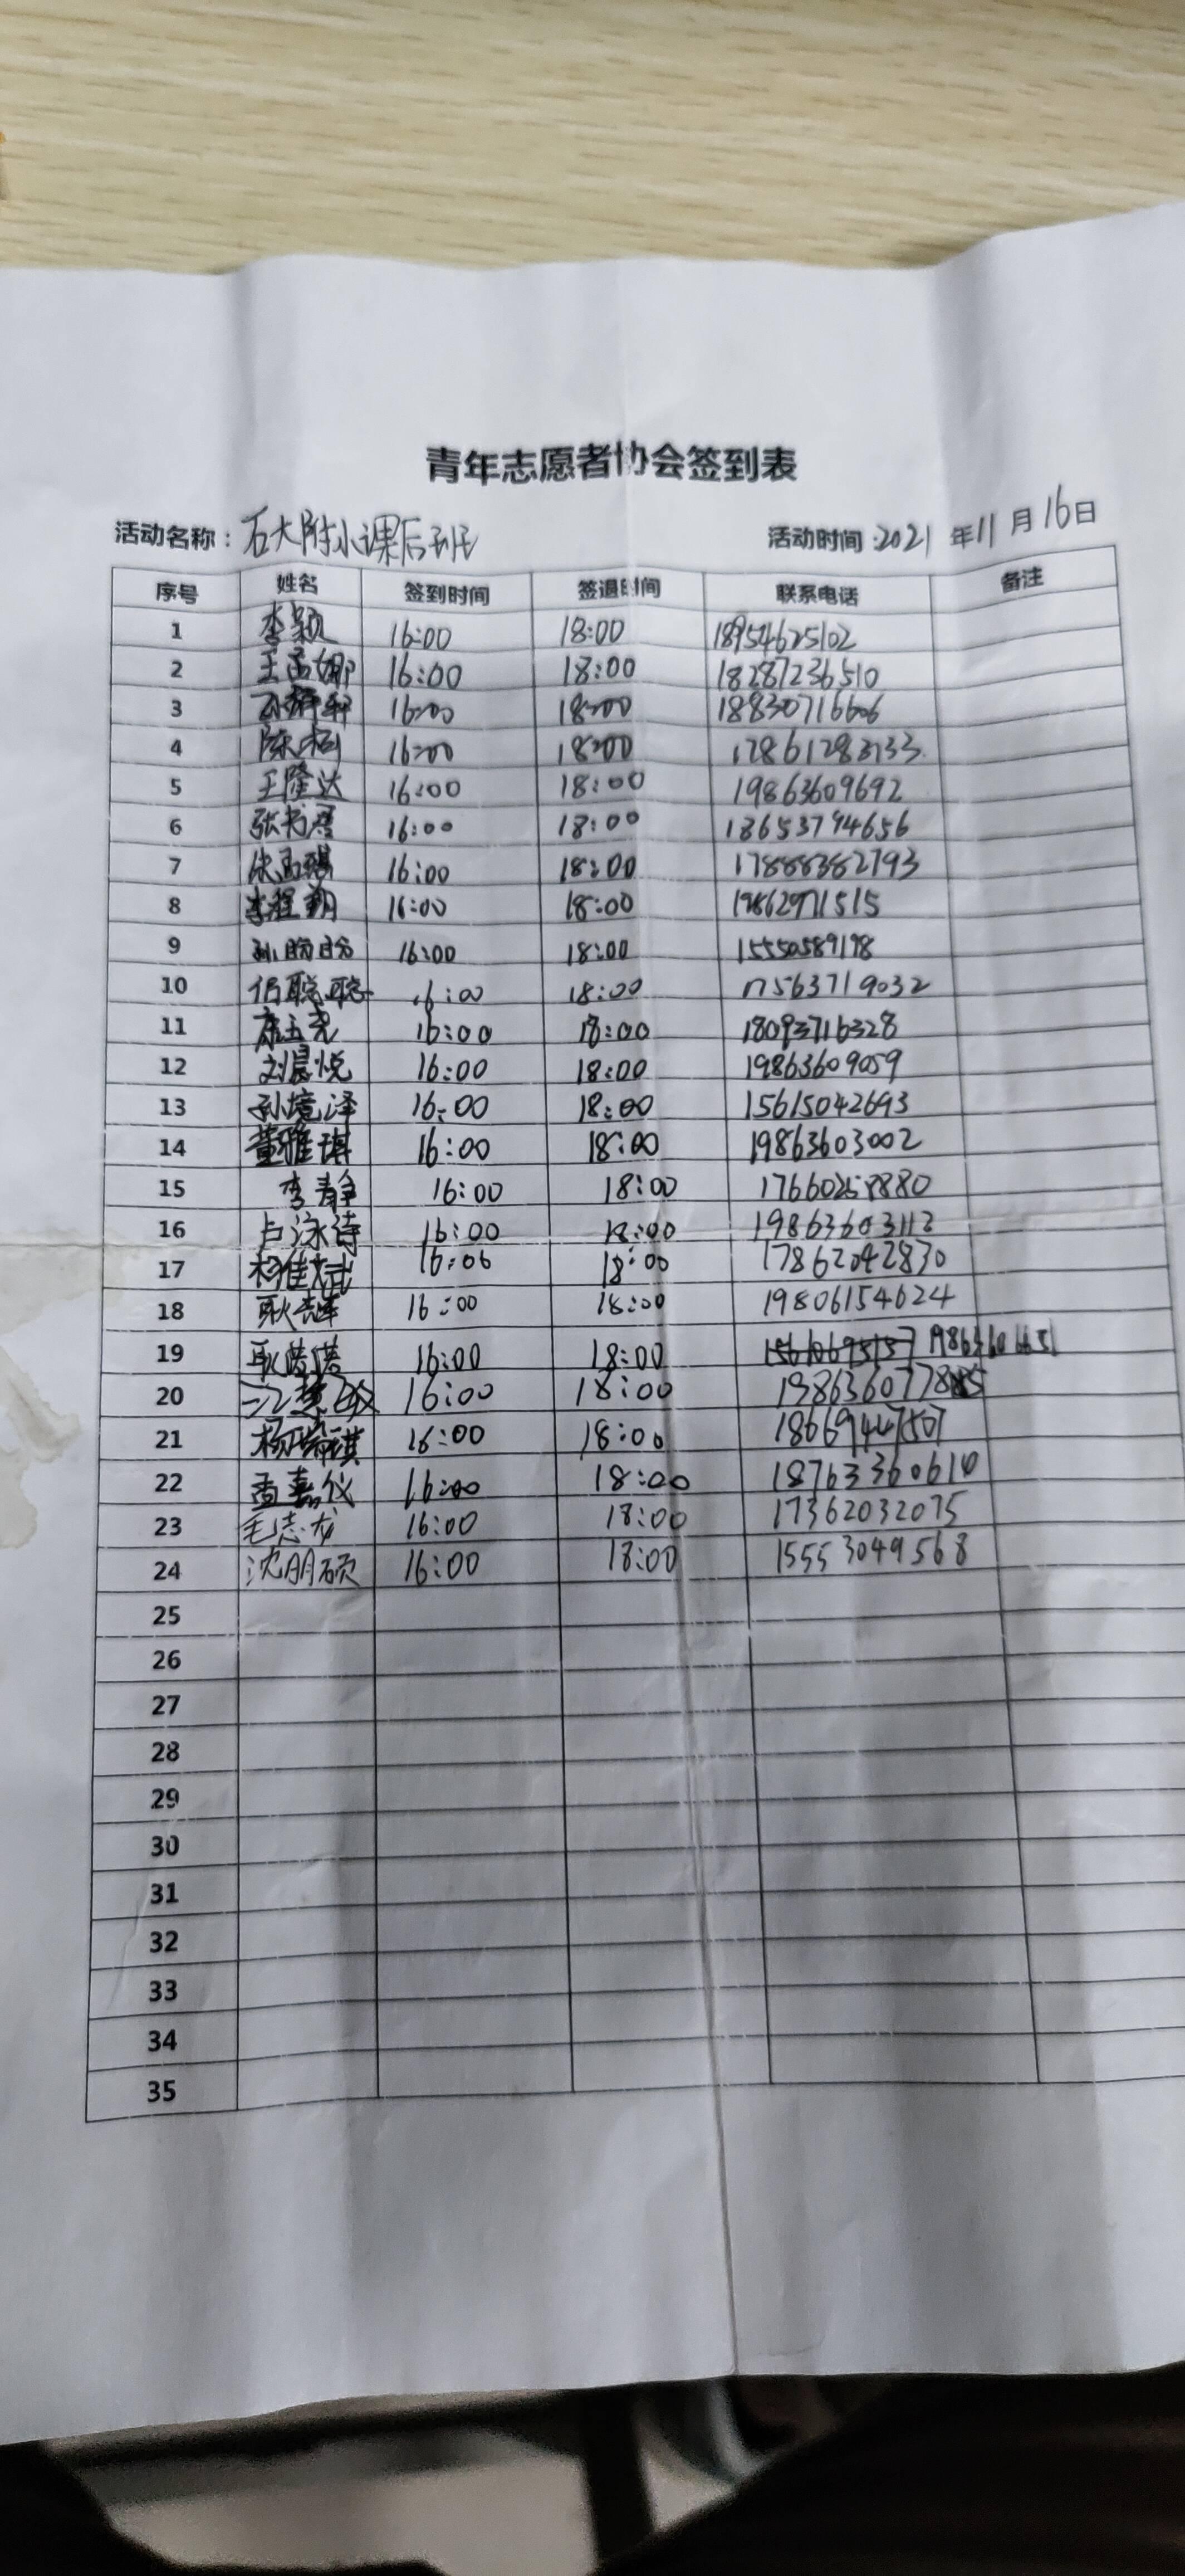 青年志愿者协会签到表
活动名称：石大附小课后班 活动时间:2021年11月16日
序号 姓名 签到时间 签退时间 联系电话 备注
1 李颖 16:00 18:00 18954625102
2 王孟娜 16:00 18:00 18287236510
3 16:00 18:00 18830716606
4 陈 16:00 18:00 17861283133
5 王隆达 16:00 18:00 19863609692
6 张 16:00 18:00 18653794656
7 16:00 18:00 17888382793
8 李程翔 16:00 18:00
9 孙盼盼 16:00 18:00 15550589198
10 聪聪 16:00 18:00 17563719032
11 16:00 18:00 18093716328
12 刘晨悦 16:00 18:00 19863609059
13 孙境泽 16:00 18:00 15615042693
14 董雅琪 16:00 18:00 19863603002
15 李静 16:00 18:00
16 卢泳诗 16:00 18:00 19863603112
17 杨佳 16:00 18:00 17862042830
18 耿 16:00 18:00 19806154624
19 耿 16:00 18:00
20 16:00 18:00
21 杨瑞祺 16:00 18:00 18669447507
22 孟嘉仪 16:00 18:00 18763360610
23 毛志龙 16:00 18:00 17362032075
24 沈明硕 16:00 18:00 15553049568
25
26
27
28
29
30
31
32
33
34
35